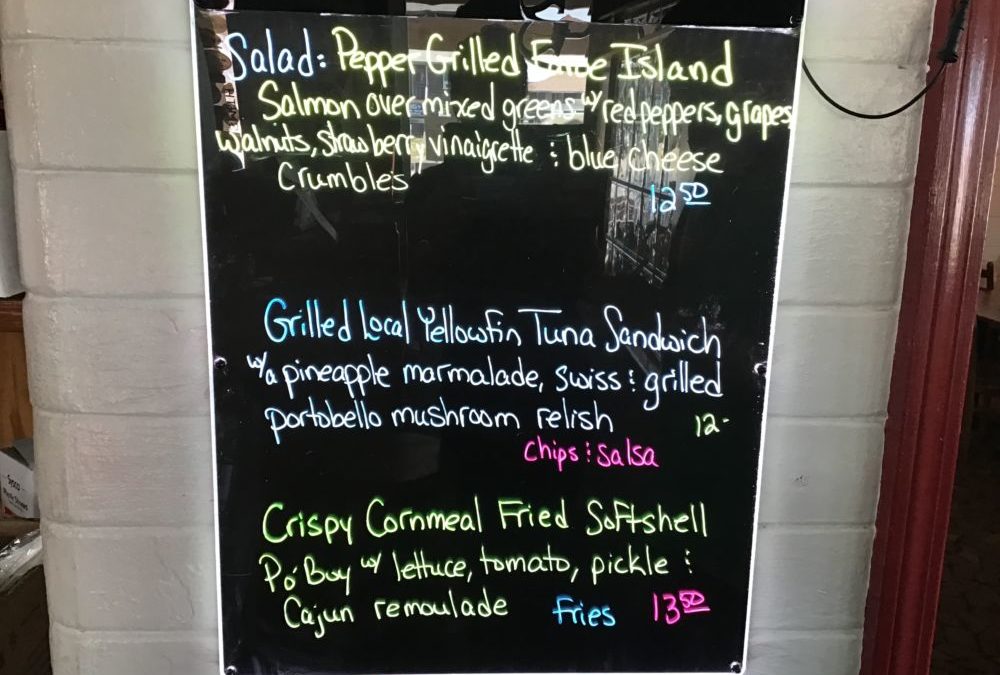 Salad: Pepper Grilled Faroe Island
Salmon over mixed greens w/ red peppers, grapes,
walnuts, strawberry vinaigrette & blue cheese
Crumbles
12 50
Grilled Local Yellowfin Tuna Sandwich
w/a pineapple marmalade, swiss & grilled
portobello mushroom relish 12-
Chips & Salsa
Crispy Cornmeal Fried Softshell
Po' Boy w/ lettuce, tomato, pickle &
Cajun remoulade Fries 13 50
Sysco